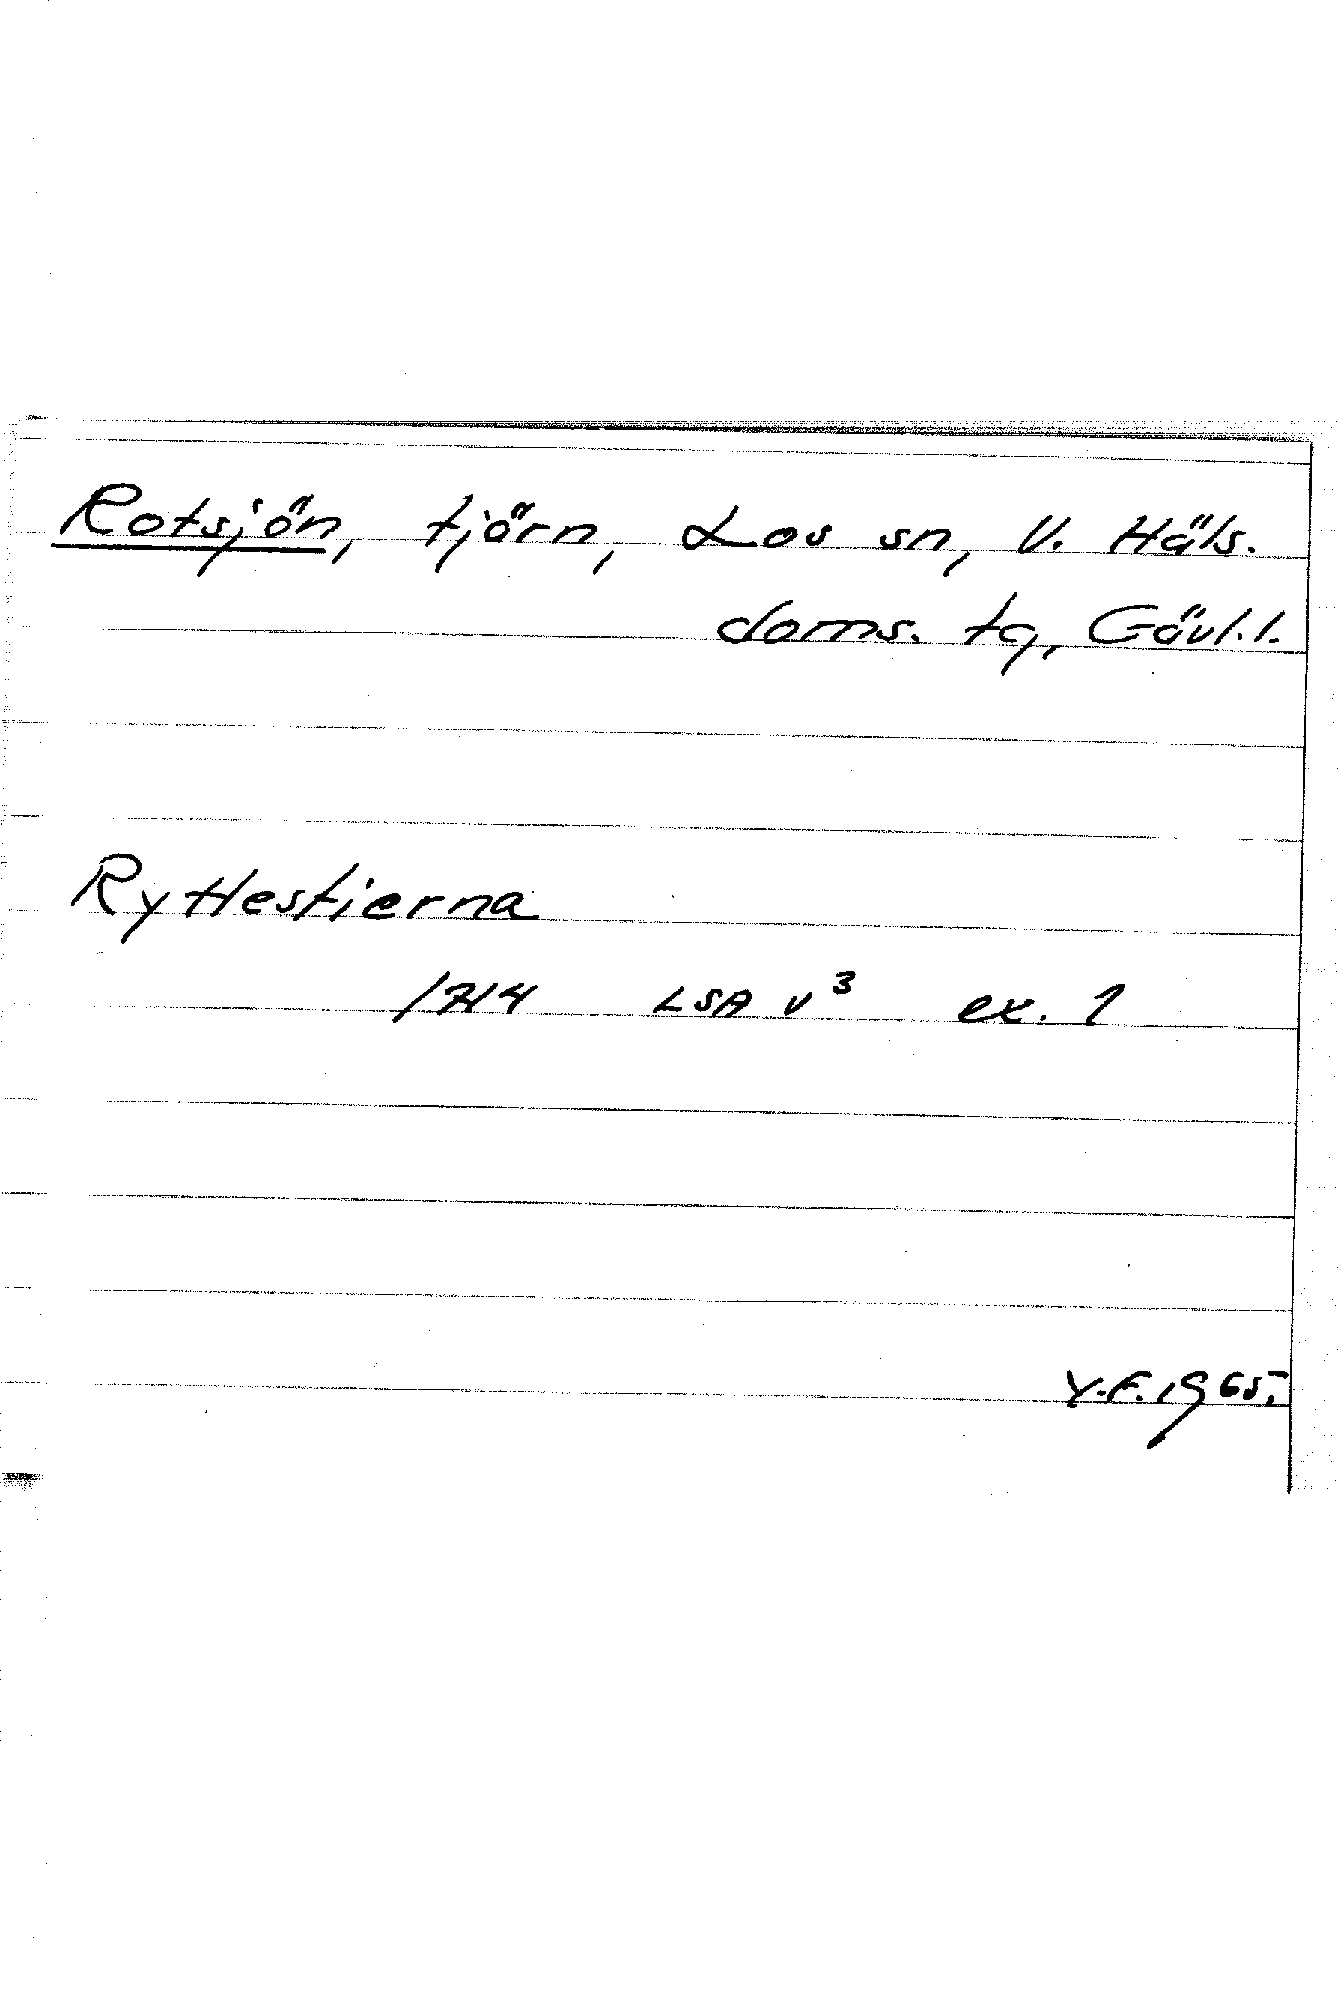 Rotsjön, tjärn, Los sn, V. Häls.
doms. tg, Gävl. l.
Ryttestierna
1714 LSA V³ ex. 1
Y.F. 1965.